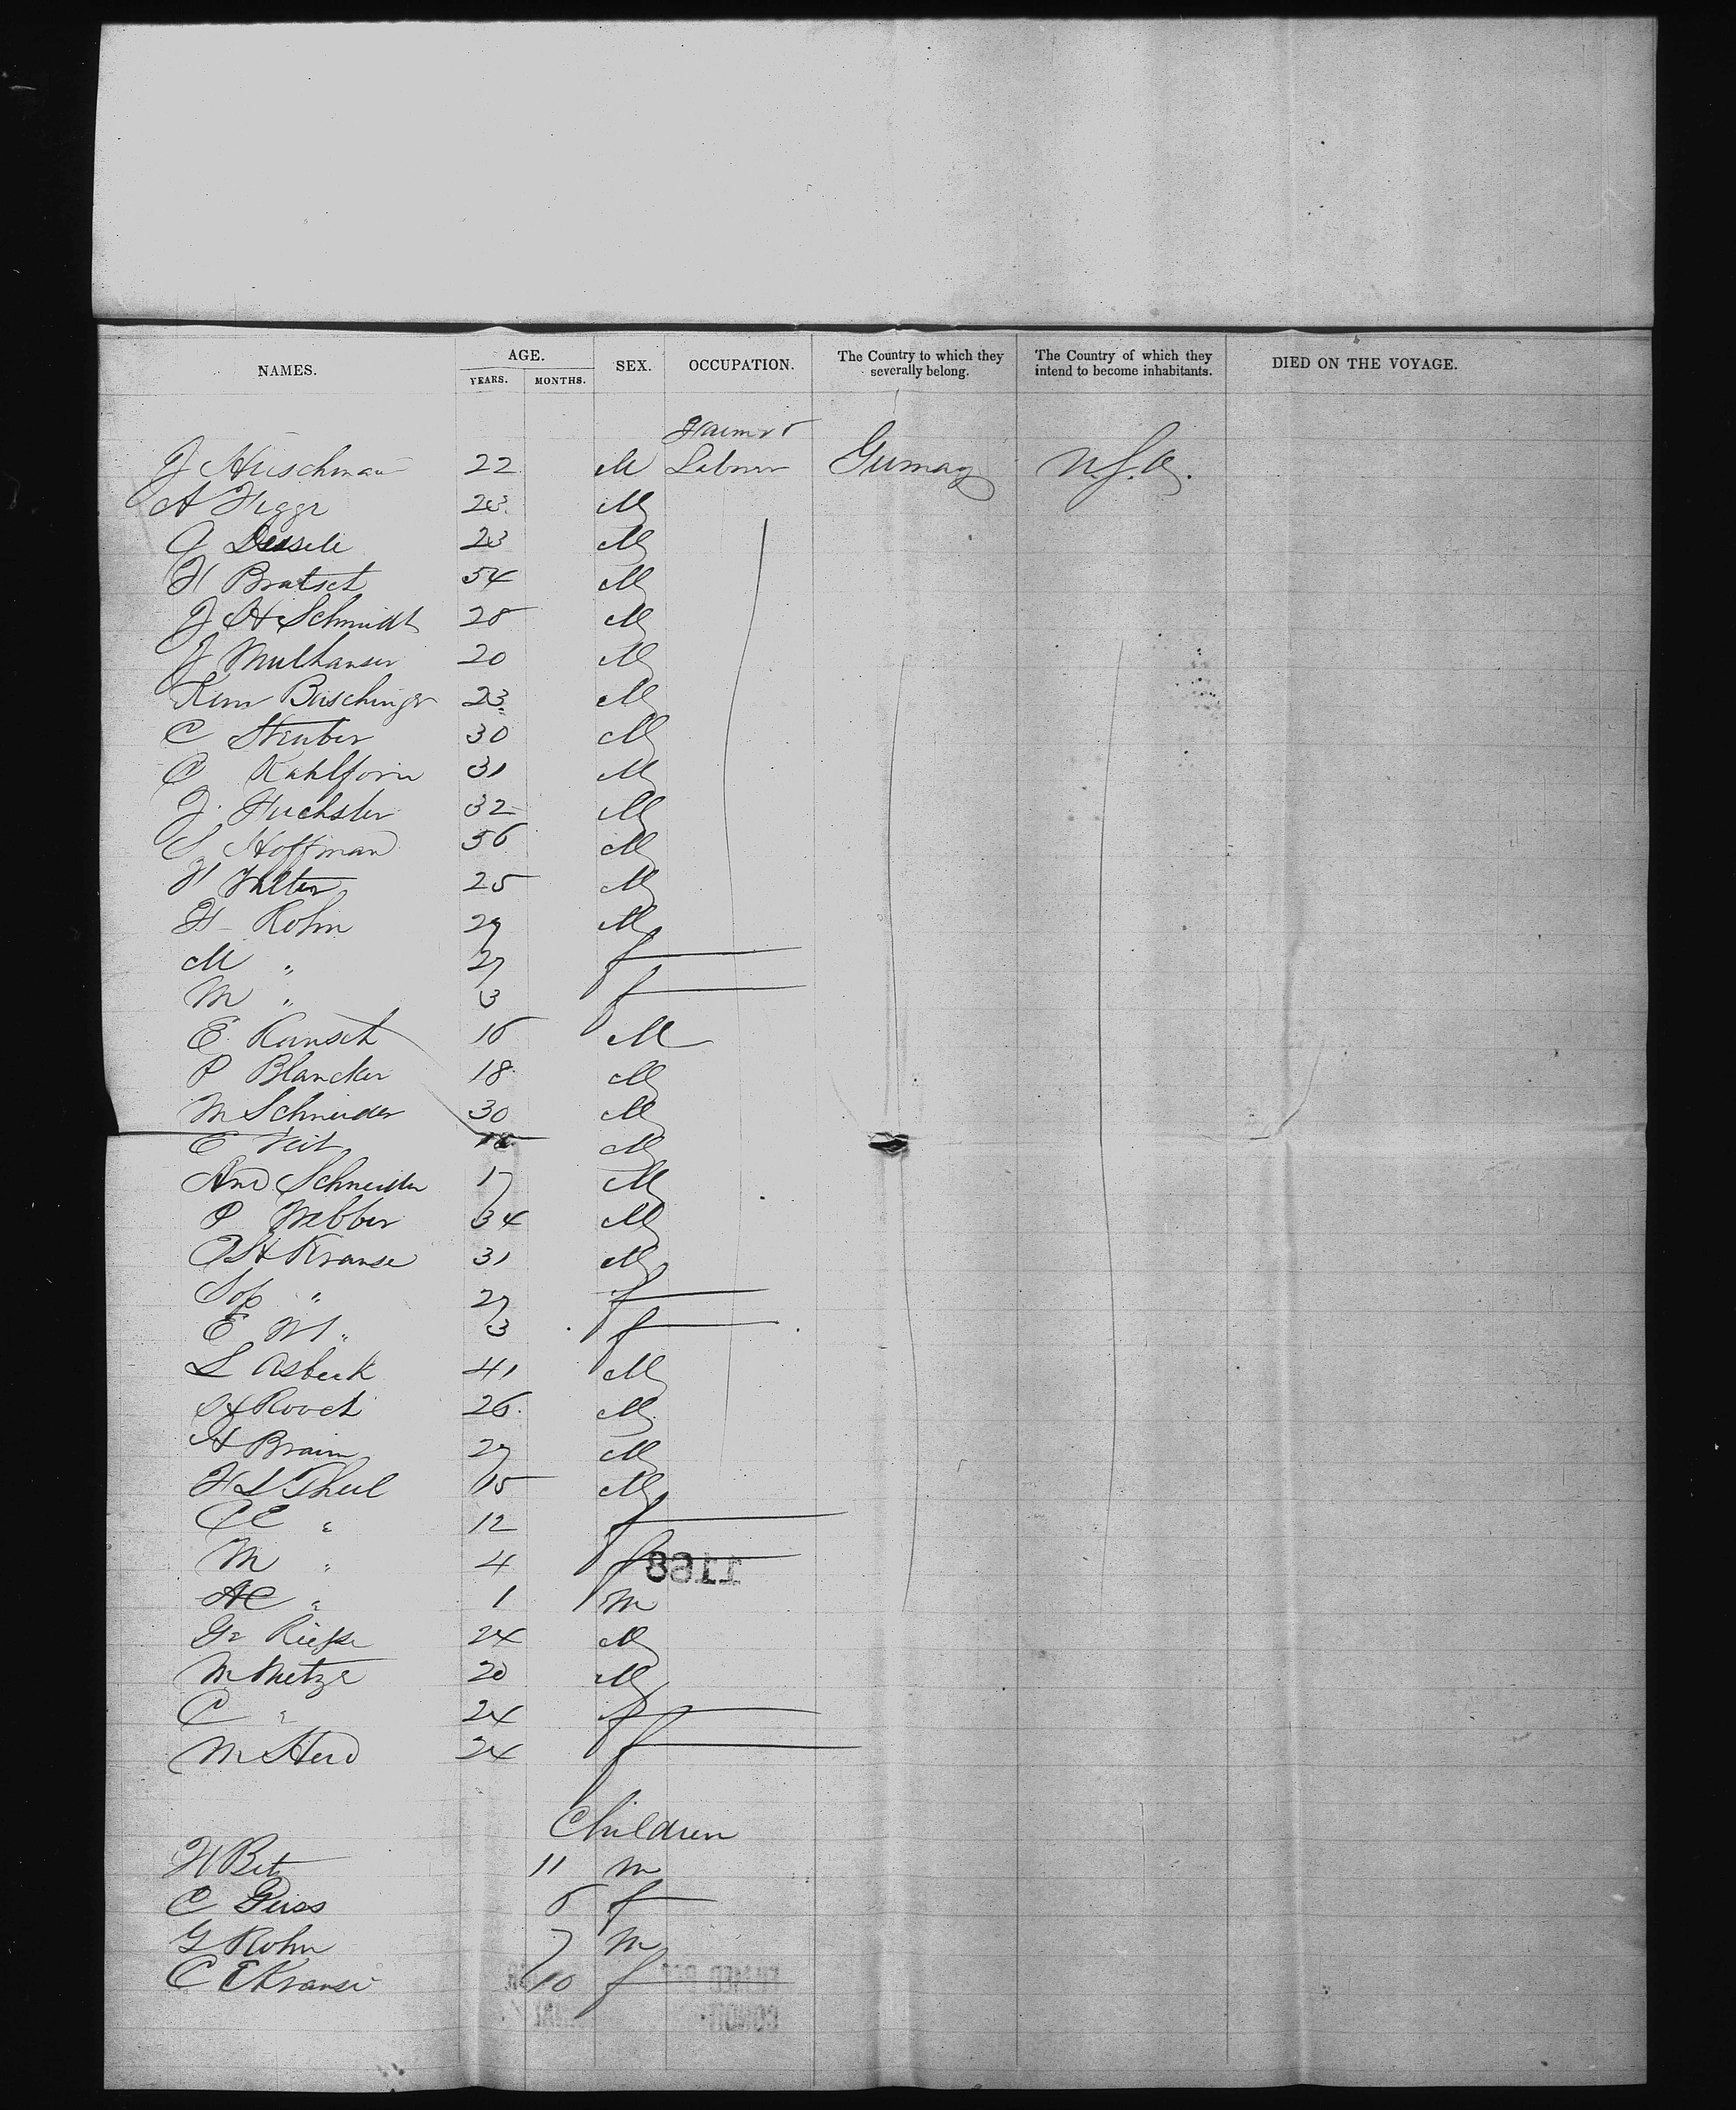 NAMES. AGE. SEX. OCCUPATION. The Country to which they severally belong. The Country of which they intend to become inhabitants. DIED ON THE VOYAGE.
YEARS. MONTHS.
Farmer
J Hirschman 22 M Labour Germany U.S.A.
A 23 M
J 23 M
H Bratsch 54 M
J H Schmidt 28 M
J Mulhauser 20 M
Buschinger 23 M
C Steuber 30 M
C Kahlforn 31 M
J. Fuchsler 32 M
S Hoffman 56 M
H Walter 25 M
H Rohn 29 M
M " 27 f
M " 3 f
E. Kunsch 16 M
P Blancker 18 M
M Schneider 30 M
E Veit M
And Schneider 17 M
P Webber 34 M
H Krause 31 M
Sop " 27 f
E M " 3 f
L Asbeck 41 M
H Rooch 26 M
H Braun 27 M
H L Theil 15 M
C E " 12 f
M " 4 f
AC " 1 m
1168
24 M
M Metze 20 M
C " 24 f
M Herd 24 f
Children
H Betz 11 m
C Geiss 6 f
G Rohn 7 m
C E Krause 10 f